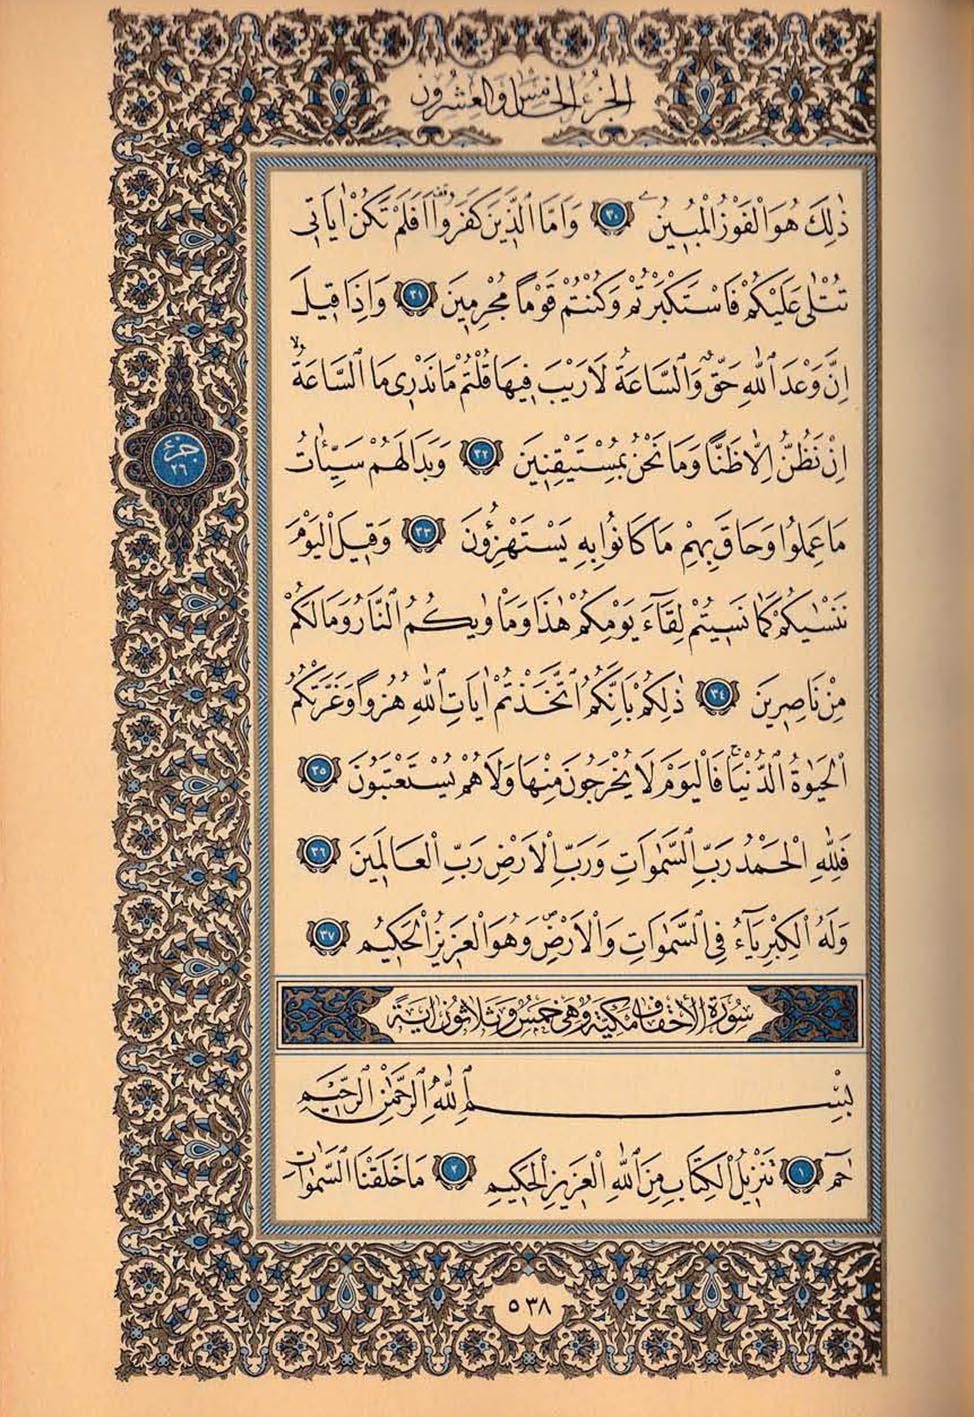 الجزء الخامس والعشرون
ذٰلِكَ هُوَ الْفَوْزُ الْمُبٖينُ ﴿٣٠﴾ وَاَمَّا الَّذٖينَ كَفَرُوا اَفَلَمْ تَكُنْ اٰيَاتٖى
تُتْلٰى عَلَيْكُمْ فَاسْتَكْبَرْتُمْ وَكُنْتُمْ قَوْمًا مُجْرِمٖينَ ﴿٣١﴾ وَاِذَا قٖيلَ
اِنَّ وَعْدَ اللّٰهِ حَقٌّ وَالسَّاعَةُ لَا رَيْبَ فٖيهَا قُلْتُمْ مَا نَدْرٖى مَا السَّاعَةُ
جزء
٢٦
اِنْ نَظُنُّ اِلَّا ظَنًّا وَمَا نَحْنُ بِمُسْتَيْقِنٖينَ ﴿٣٢﴾ وَبَدَا لَهُمْ سَيِّـَٔاتُ
مَا عَمِلُوا وَحَاقَ بِهِمْ مَا كَانُوا بِهٖ يَسْتَهْزِؤُنَ ﴿٣٣﴾ وَقٖيلَ الْيَوْمَ
نَنْسٰيكُمْ كَمَا نَسٖيتُمْ لِقَٓاءَ يَوْمِكُمْ هٰذَا وَمَاْوٰيكُمُ النَّارُ وَمَا لَكُمْ
مِنْ نَاصِرٖينَ ﴿٣٤﴾ ذٰلِكُمْ بِاَنَّكُمُ اتَّخَذْتُمْ اٰيَاتِ اللّٰهِ هُزُوًا وَغَرَّتْكُمُ
الْحَيٰوةُ الدُّنْيَا فَالْيَوْمَ لَا يُخْرَجُونَ مِنْهَا وَلَا هُمْ يُسْتَعْتَبُونَ ﴿٣٥﴾
فَلِلّٰهِ الْحَمْدُ رَبِّ السَّمٰوَاتِ وَرَبِّ الْاَرْضِ رَبِّ الْعَالَمٖينَ ﴿٣٦﴾
وَلَهُ الْكِبْرِيَٓاءُ فِى السَّمٰوَاتِ وَالْاَرْضِ وَهُوَ الْعَزٖيزُ الْحَكٖيمُ ﴿٣٧﴾
سورة الأحقاف مكية وهي خمس وثلاثون آية
بِسْمِ اللّٰهِ الرَّحْمٰنِ الرَّحٖيمِ
حٰمٓ ﴿١﴾ تَنْزٖيلُ الْكِتَابِ مِنَ اللّٰهِ الْعَزٖيزِ الْحَكٖيمِ ﴿٢﴾ مَا خَلَقْنَا السَّمٰوَاتِ
٥٣٨